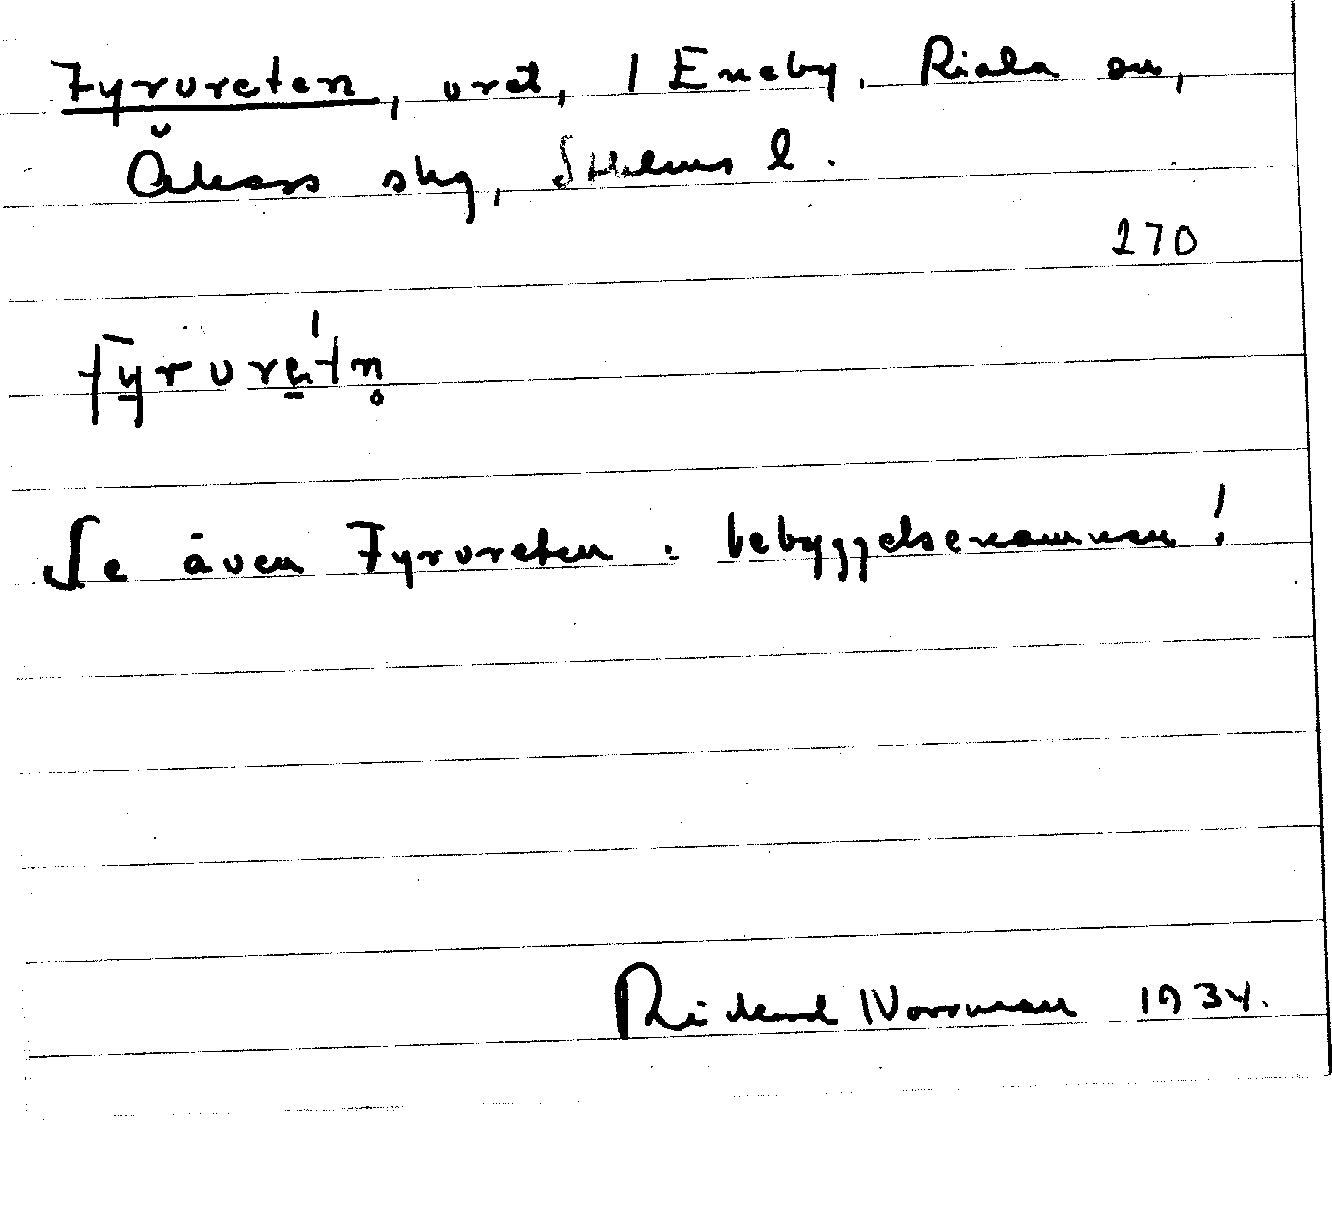 Fyrvreten, vret, 1 Eneby, Riala sn,
Åkers skg, Sthlms l.
270
fȳrvre̠'tn̥
Se även Fyrvreten : bebyggelsenamnen!
Rickard Norrman 1934.